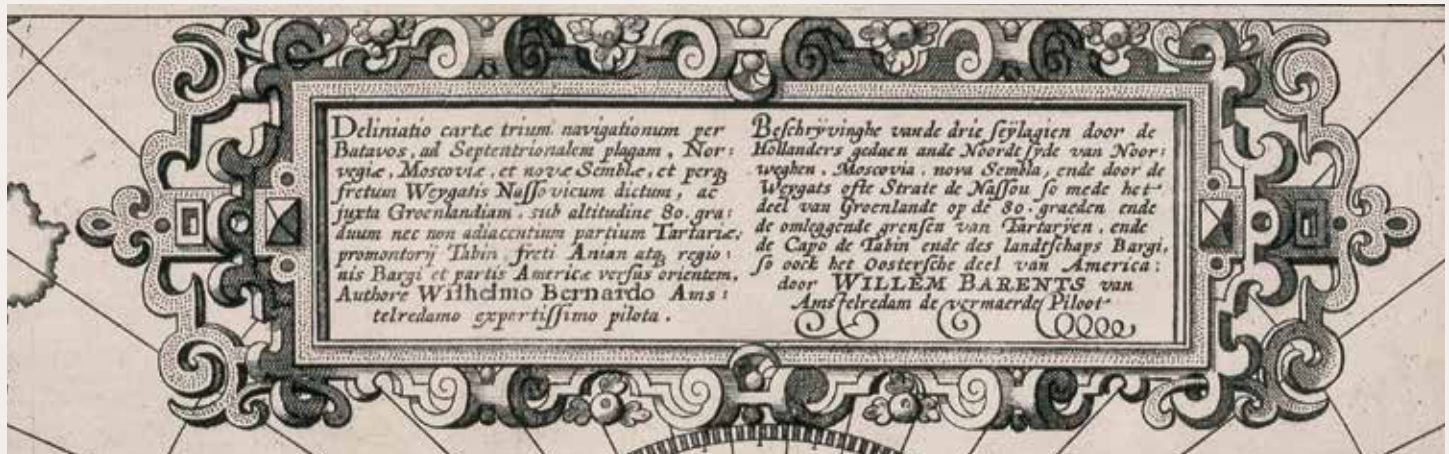 Deliniatio cartæ trium navigationum per
Batavos, ad Septentrionalem plagam, Nor:
vegiæ, Moscoviæ, et novæ Semblæ, et perqꝫ
fretum Weygatis Nassovicum dictum, ac
juxta Groenlandiam, sub altitudine 80. gra:
duum nec non adiacentium partium Tartariæ,
promontorij Tabin, freti Anian atqꝫ regio:
nis Bargi et partis Americæ versus orientem,
Authore Wilhelmo Bernardo Ams:
telredamo expertissimo pilota.
Beschryvinghe vande drie seylagien door de
Hollanders gedaen ande Noordt syde van Noor:
weghen, Moscovia, nova Sembla, ende door de
Weygats ofte Strate de Nassou so mede het
deel van Groenlandt op de 80. graeden ende
de omleggende grensen van Tartaryen, ende
de Capo de Tabin ende des landtschaps Bargi,
so oock het Oostersche deel van America:
door WILLEM BARENTS van
Amstelredam de vermaerde Piloot